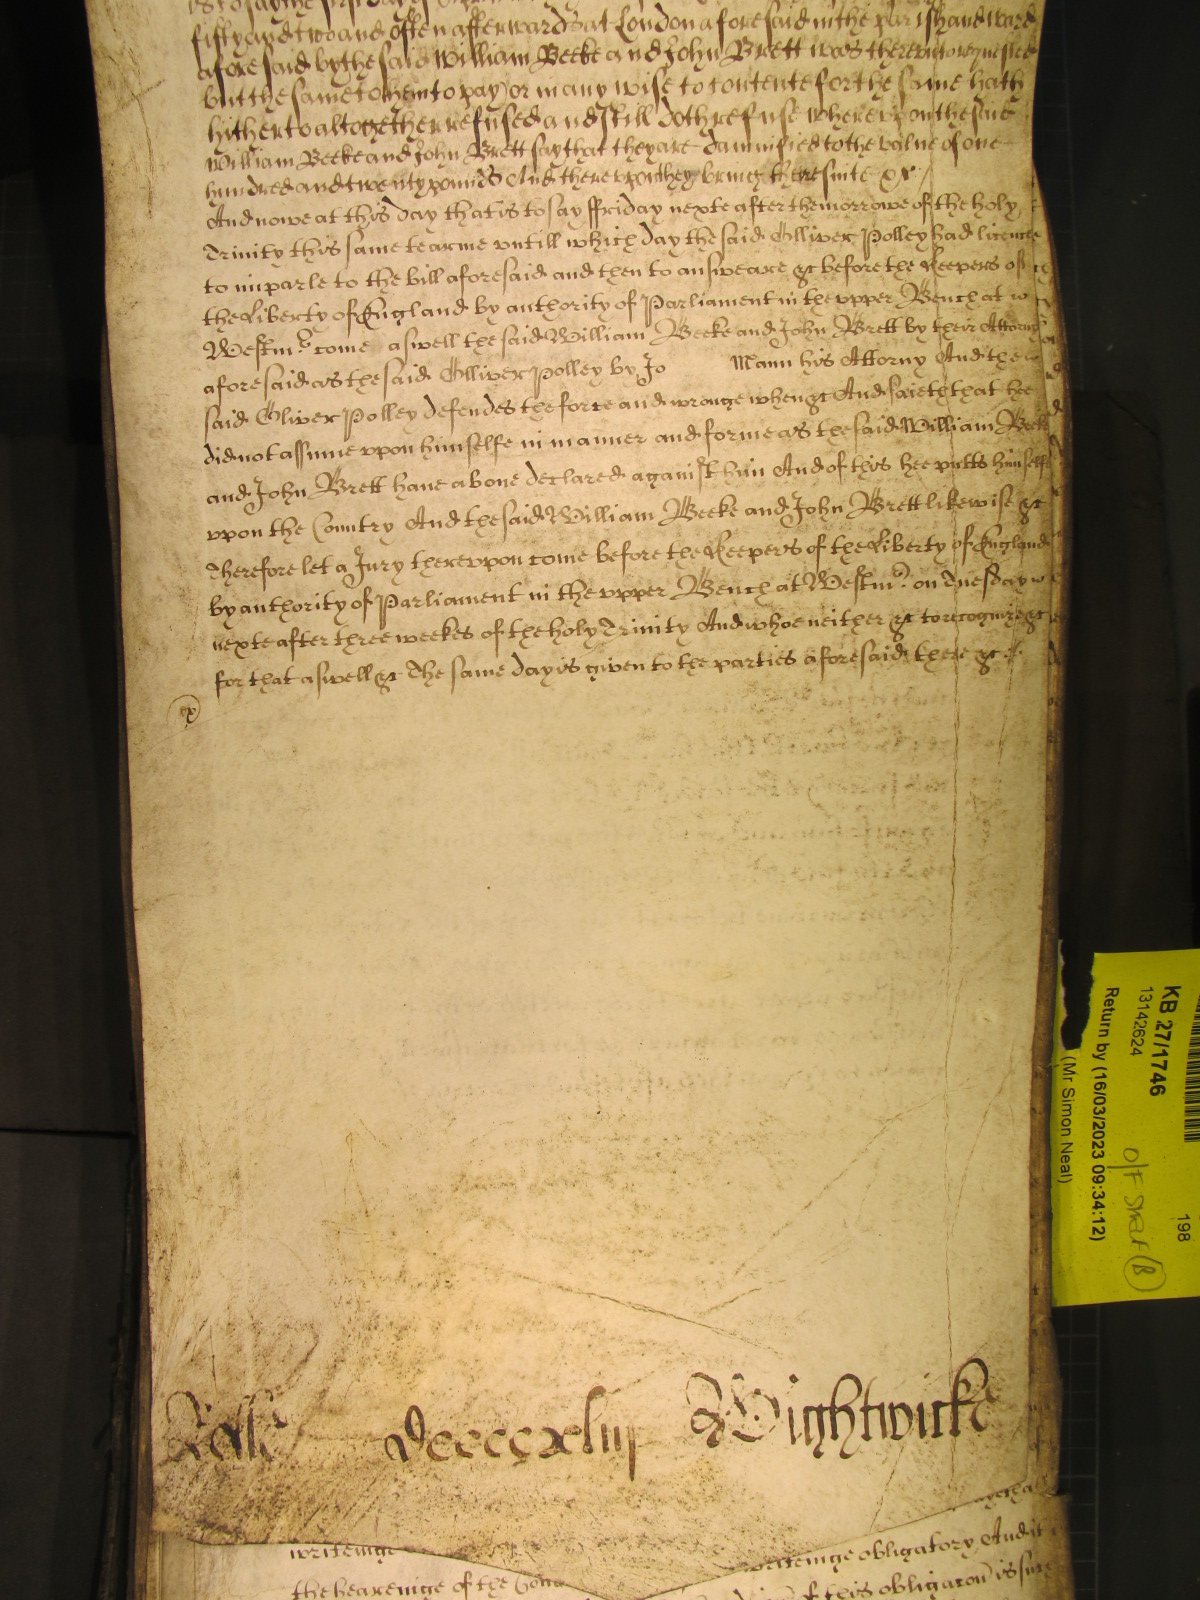 is to say the first day of
fifty and two and often afterwards at London aforesaid in the parish and ward
aforesaid by the said William Beeke and John Brett was therevnto requested
but the same to them to pay or in any wise to contente for the same hath
hitherto altogether refused and still doth refuse wherevpon the said
William Beeke and John Brett say that they are damnified to the value of one
hundred and twenty pounds And therevpon they bring there suite &c
And nowe at this day that is to say ffriday nexte after the morrowe of the holy
Trinity this same tearme vntill which day the said Olliver Polley had licence
to imparle to the bill aforesaid and then to answeare &c before the Keepers of
the Liberty of England by authority of Parliament in the vpper Bench at
Westmr come aswell the said William Beeke and John Brett by their Attorny
aforesaid as the said Olliver Polley by Jo Mann his Attorny And the
said Oliver Polley defendes the force and wronge when &c And saieth that hee
did not assume vpon himselfe in manner and forme as the said William Beeke
and John Brett haue aboue declared against him And of this hee putts himself
vpon the Country And the said William Beeke and John Brett likewise &c
Therefore let a Jury therevpon come before the Keepers of the Liberty of England
by authority of Parliament in the vpper Bench at Westmr on Tuesday
nexte after three weekes of the holy Trinity And whoe neither &c to recognize &c
for that aswell &c The same day is given to the parties aforesaid there &c
Wightwick
writeinge
writeinge obligatory And it
the heareinge of the
of this obligacon is
KB 27/1746
13142624
198
Return by (16/03/2023 09:34:12)
(Mr Simon Neal)